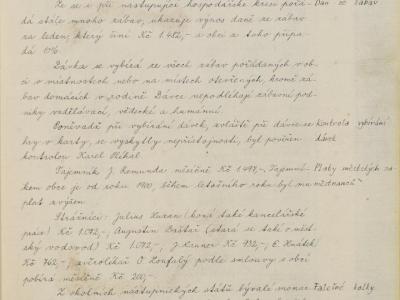 Že se i při nastupující hospodářské krisi pořá- Daň ze zábav
dá stále mnoho zábav, ukazuje výnos daně ze zábav
za leden, který činí Kč 1.482,- a obci z toho připa-
dá 10%.
Dávka se vybírá ze všech zábav pořádaných v ob-
ci v místnostech nebo na místech otevřených, kromě zá-
bav domácích v rodině. Dávce nepodléhají zábavní pod-
niky vzdělávací, vědecké a humánní.
Poněvadž při vybírání dávek, zvláště při dávce ze kontrola vybírání
hry v karty, se vyskytly nepřístojnosti, byl pověřen dávek
kontrolou Karel
Tajemník J. Romunda měsíčně Kč 1.497,- Tajemní- Platy městských za-
kem obce je od roku 1900, během letošního roku byl mu městnanců
plat zvýšen.
Strážníci: Julius Huran (koná také kancelářské
práce) Kč 1.072,-, Augustin Baštář (stará se také o měst-
ský vodovod) Kč 1.072,-, J. Renner Kč 932,-, E. Hnátek
Kč 762,- zvěrolékař O. Koufalý podle smlouvy s obcí
pobírá měsíčně Kč 200,-.
Z okolních nástupnických států bývalé monar- Falešné kolky